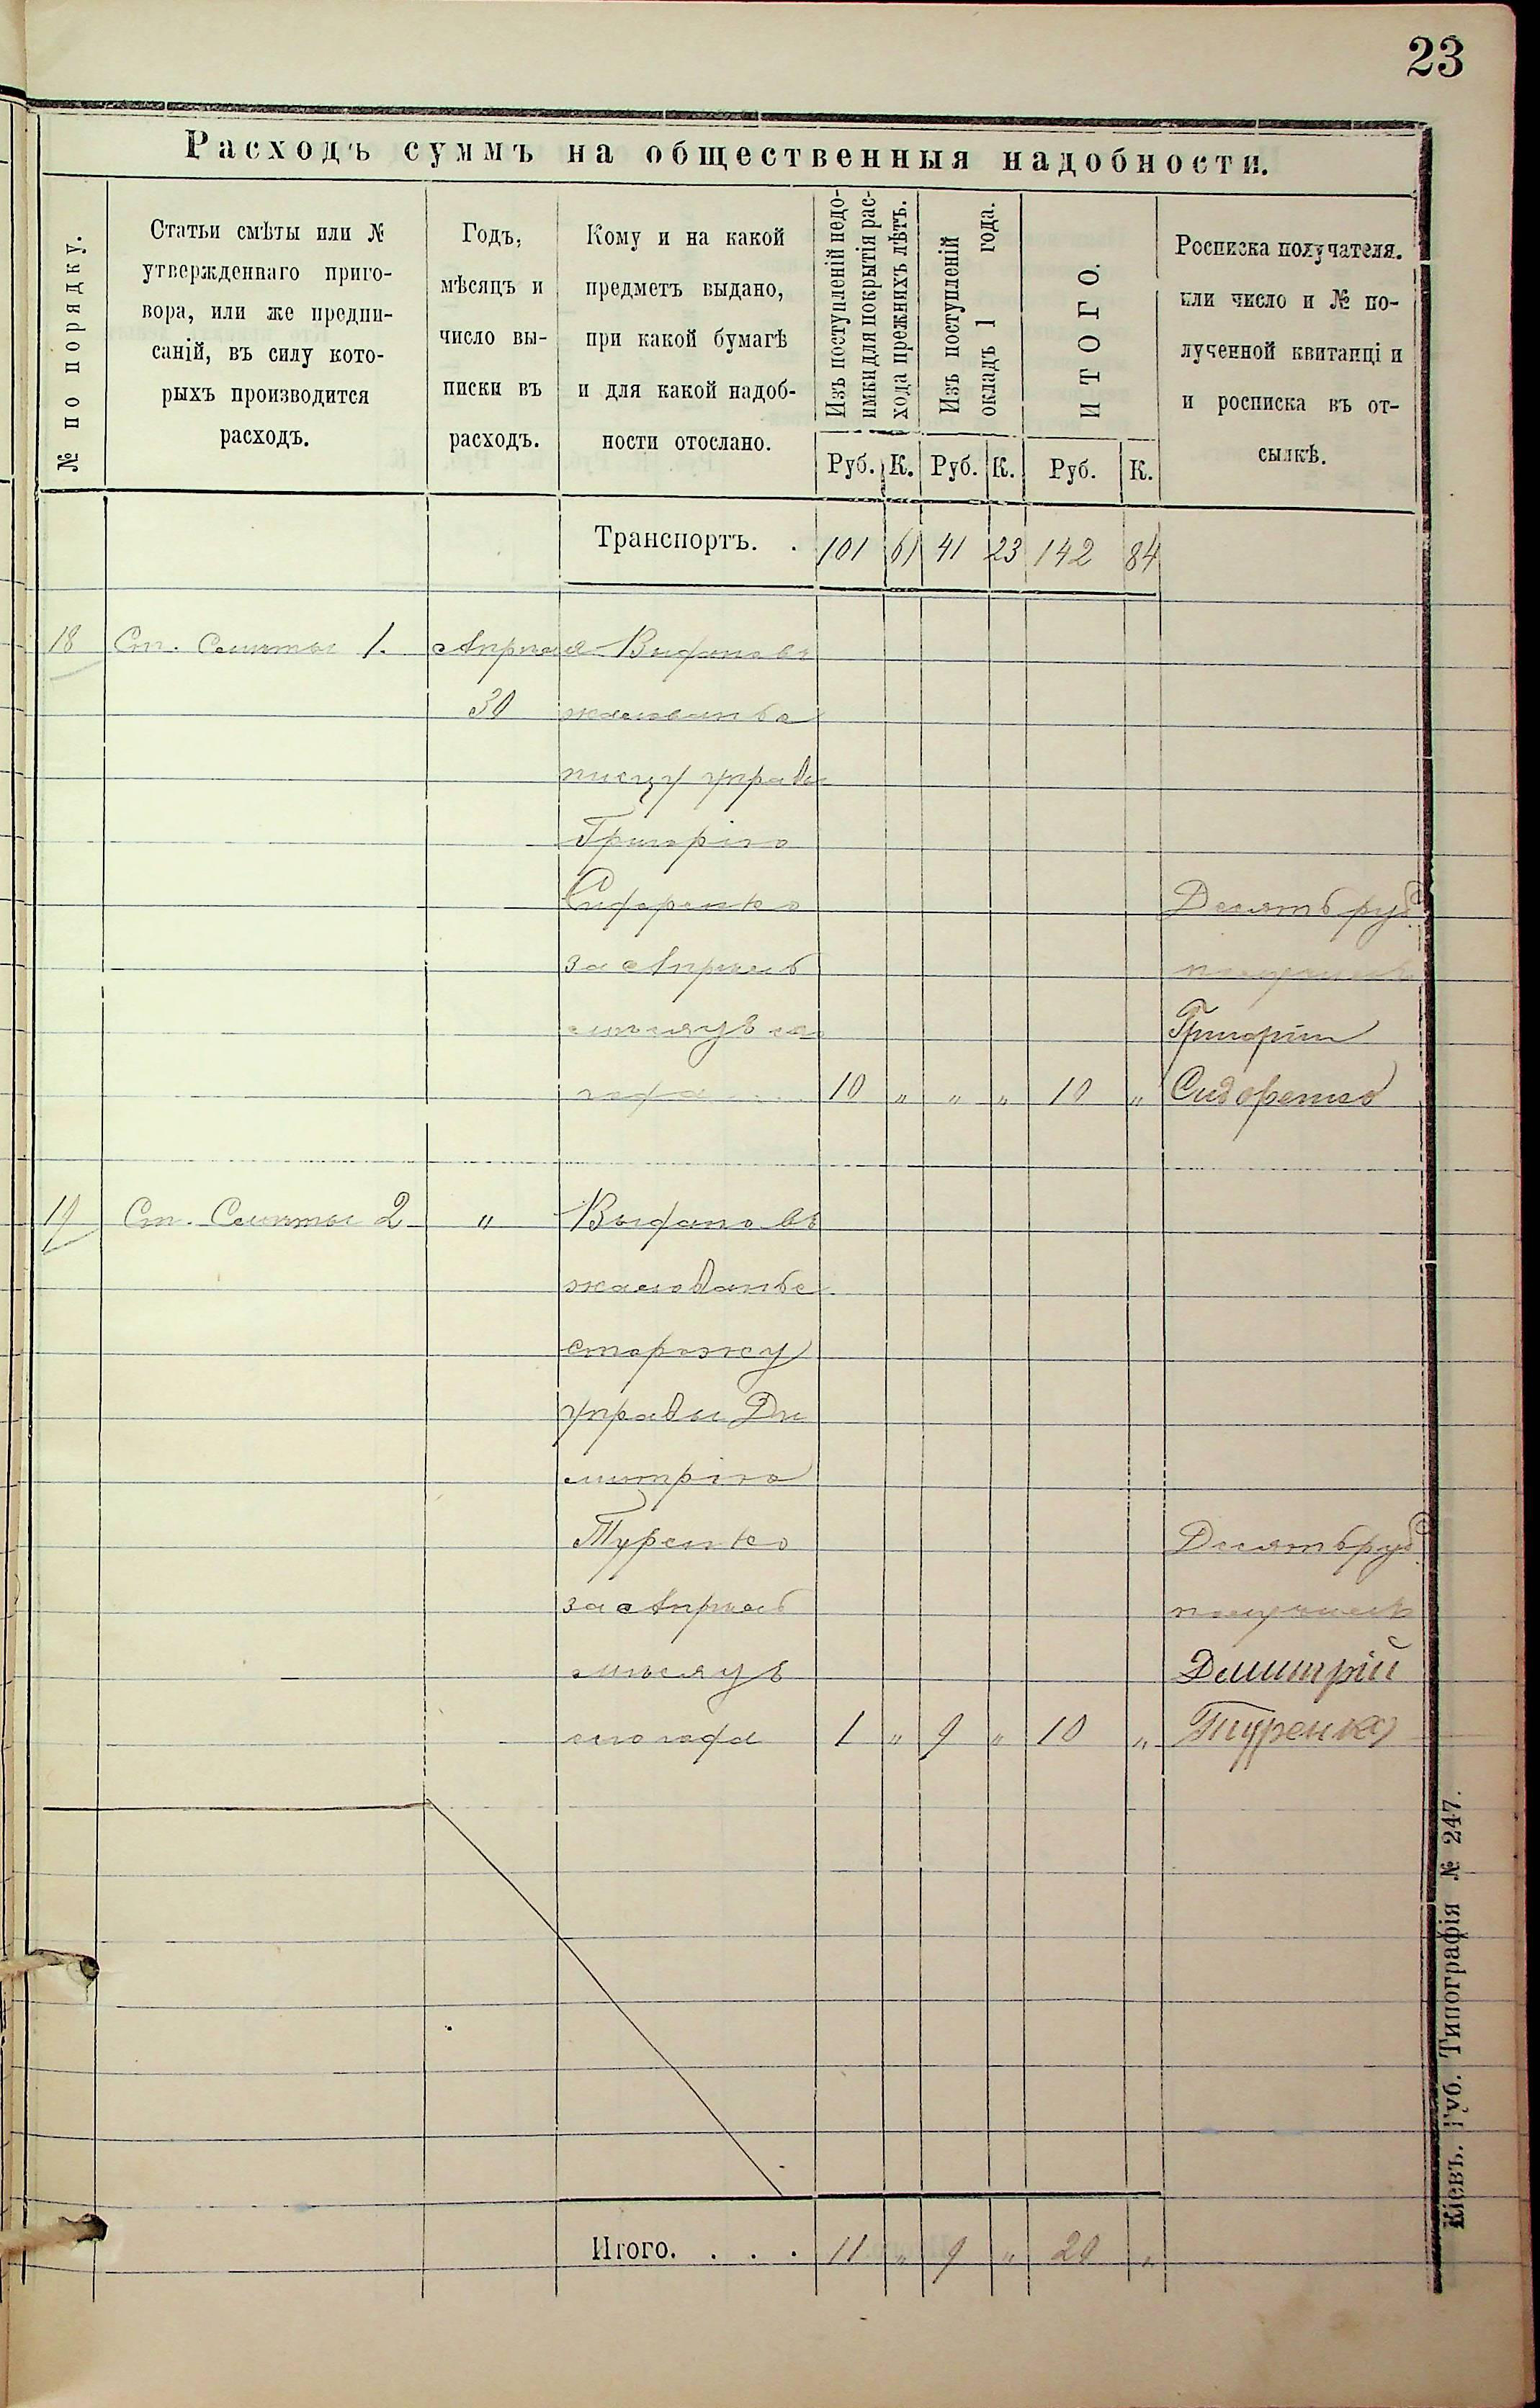 23
Расходъ суммъ на общественныя надобности.
№ по порядку.
Статьи смѣты или №
утвержденнаго приго-
вора, или же предпи-
саній, въ силу кото-
рыхъ производится
расходъ.
Годъ,
мѣсяцъ и
число вы-
писки въ
расходъ.
Кому и на какой
предметъ выдано,
при какой бумагѣ
и для какой надоб-
ности отослано.
Изъ поступленій недо-
имки для покрытія рас-
хода прежнихъ лѣтъ.
Изъ поступленій
окладъ 1 года.
ИТОГО.
Росписка получателя.
или число и № по-
лученной квитанці и
и росписка въ от-
сылкѣ.
Руб. К. Руб. К. Руб. К.
Транспортъ. . 101 61 41 23 142 84
18 Ст. Смѣты 1. Апрѣля Выдано въ
30 жалованье
писцу управы
Григорію
Сидоренко Десять руб.
за Апрѣль получилъ
мѣсяцъ сего Григорій
года 10 „ „ „ 10 „ Сидоренко
19 Ст. Смѣты 2 „ Выдано въ
жалованье
сторожу
управы Ди
митрію
Туренко Десять руб.
за Апрѣль получилъ
мѣсяцъ Димитрій
сего года 1 „ 9 „ 10 „ Туренко
Итого. . . . 11 „ 9 „ 20 „
Кіевъ. Губ. Типографія № 247.